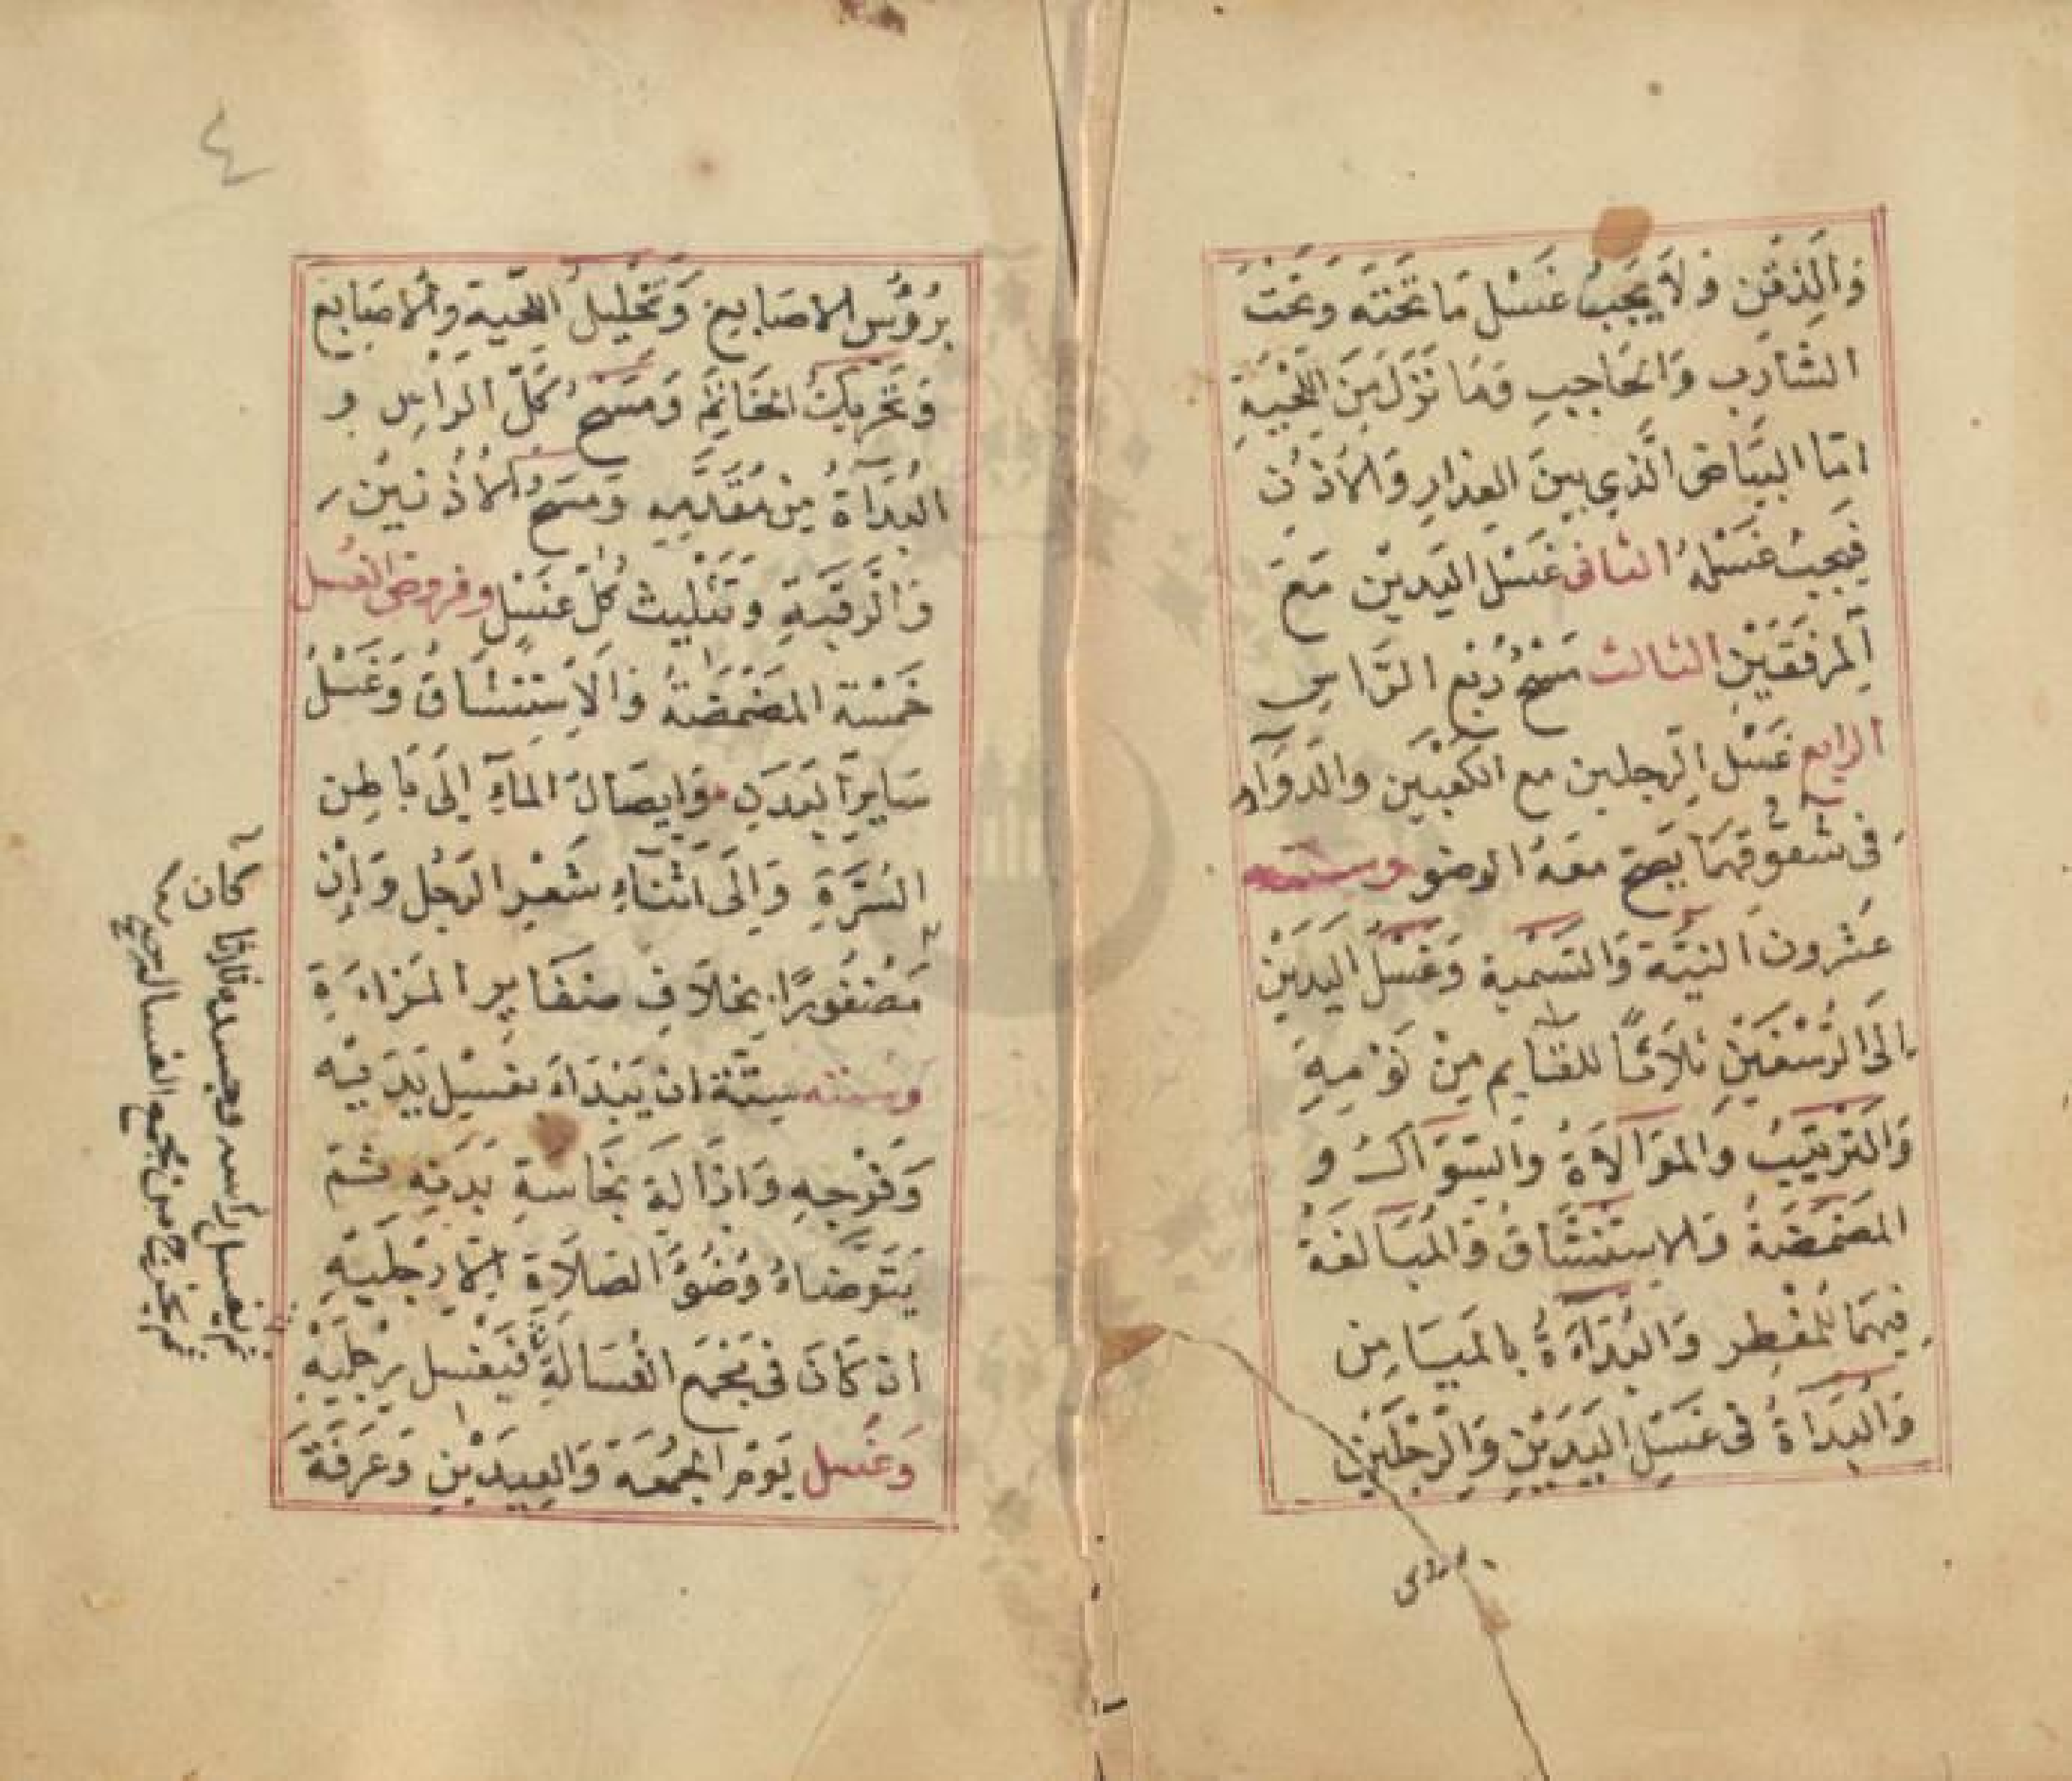 وَالذِقَنِ وَلاَ يَجِبُ غَسْل مَا تَحْتَهَ وَتحْتَ
الشارِبِ وَالحَاجِبِ وَمَا نَزَلَ مِنَ اللِحْيَةِ
امّا البيَاض الَّذِي بينَ العِذارِ وَالاُذُنِ
فيَجبُ غَسْلهُ الثاني غَسْل اليَديْن مَعَ
اَلِمرفَقَيْنِ الثالث مَسْحُ رُبْعِ الرَّاسِ
الرابع غَسْل الِرجلين مع الكَعْبَين والدوَآء
فى شقوقهَما يَصحّ معَهُ الوضو وسننه
عشْرون النيّة وَالتَسْمية وَغَسْل اليَدَيْن
اِلىَ الرُسْغَيَنِ ثلَاثًا للقَايم مِنْ نَوْمِهِ
وَالتَرْتيِبُ والموَالاَةُ وَالسِوَاكُ و
المضَمَضَةُ وَالاستِنْشَاق وَالمُبَالَغَةُ
فِيهمَا للمُفْطِر وَالبُدَآءَةُ بالمَيَامِن
وَالبُدَاةُ فى غَسْلِ اليَدَيْنِ وَالِرّجْلَيْنِ
بروس
٤
برُؤُسِ الاصَابِعِ وَتَخْليلُ اللحْيَةِ والاصَابع
وَتَحْريكُ الخَاتمَ وَمَسْحُ كُلّ الرَاسِ و
البُدَآةُ مِنْ مُقَدَّمِهِ وَمَسْحُ الاُذُنَيْن
وَالرَّقَبَةِ وَتثْليث كُلّ غَسْل وفروض الغُسل
خَمْسَة المضْمَضَةُ وَالاِسْتِنْشَاقُ وَغَسْلُ
سَايِرَ البَدَنِ وَايصَالَ المَاءِ اِلَى بَاطِن
السُرَّةِ وَاِلَى اَثْنَاءِ شَعْرِ الرَجُل وَاِنْ
مَضْفُورًا بِخلاَفِ ضَفَايِرِ المَرْاءَةِ
وَسننه سِتّة ان يَبْدَاءَ بغَسْل يَدَيْه
وَفَرْجِهِ وَاِزَالَةِ نَجَاسَةِ بَدَنِهِ ثم
يَتَوضاءُ وُضُوَّ الصَلاَة اِلاّ رِجْليَهِ
ان كَانَ فى مَجْمَع الغُسَالَةِ فيَغْسل رِجْليَهْ
وَغسل يَوْمَ الجمُعَة وَالعِيدَيْن وَعَرَفَةَ
ثم يغسل رأسه وجسده ثلاثا
ثم يخرج من مجمع الغسالة